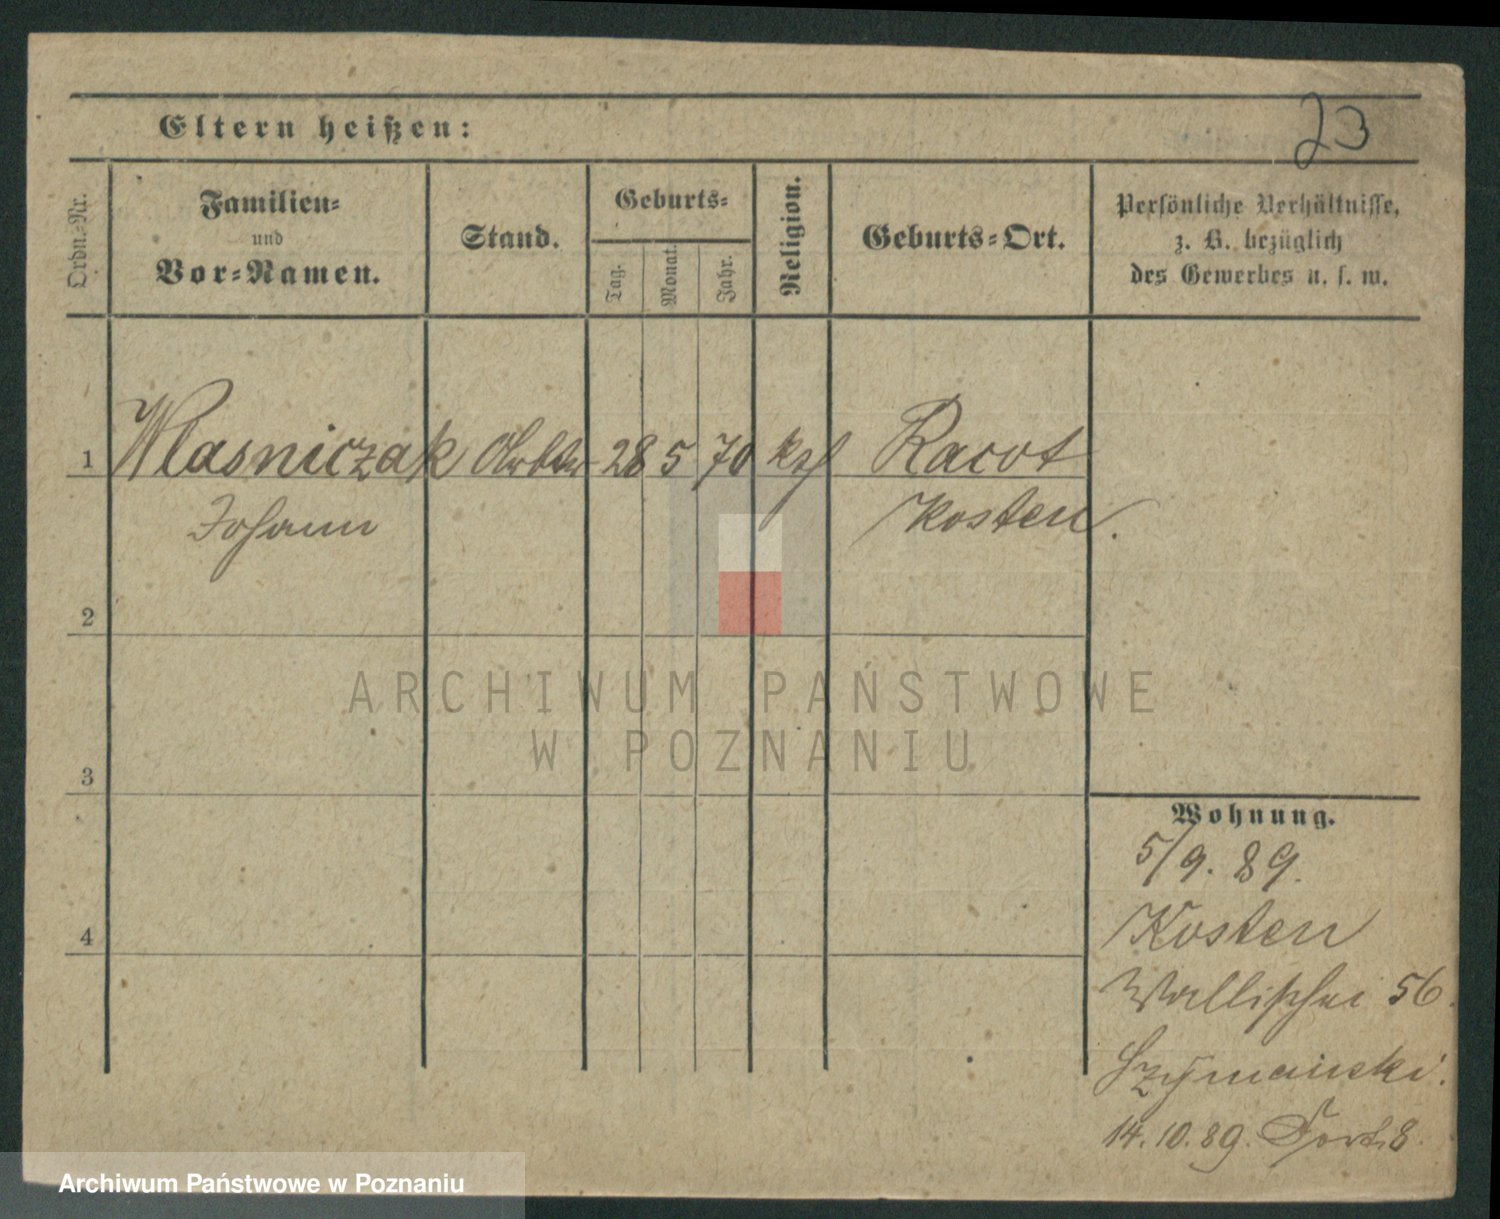 23
Eltern heißen:
Ordn.-Nr.
Familien-
und
Vor-Namen.
Stand.
Geburts-
Tag.
Monat.
Jahr.
Religion.
Geburts-Ort.
Persönliche Verhältnisse,
z. B. bezüglich
des Gewerbes u. s. w.
1 Wlasniczak 28 5 70 Racot
Johann Kosten.
2
3
4
Wohnung.
5/9. 89.
Kosten
Wallischei 56.
Szymanski.
14.10.89. Fort 8
ARCHIWUM PAŃSTWOWE
W POZNANIU
Archiwum Państwowe w Poznaniu